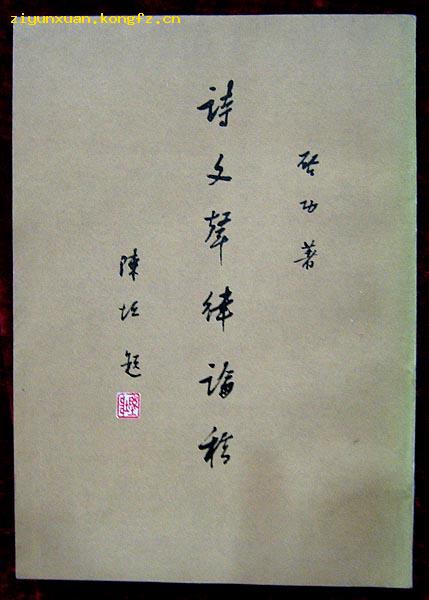 ziyunxuan.kongfz.cn
启功著
詩文聲律論稿
陳垣題